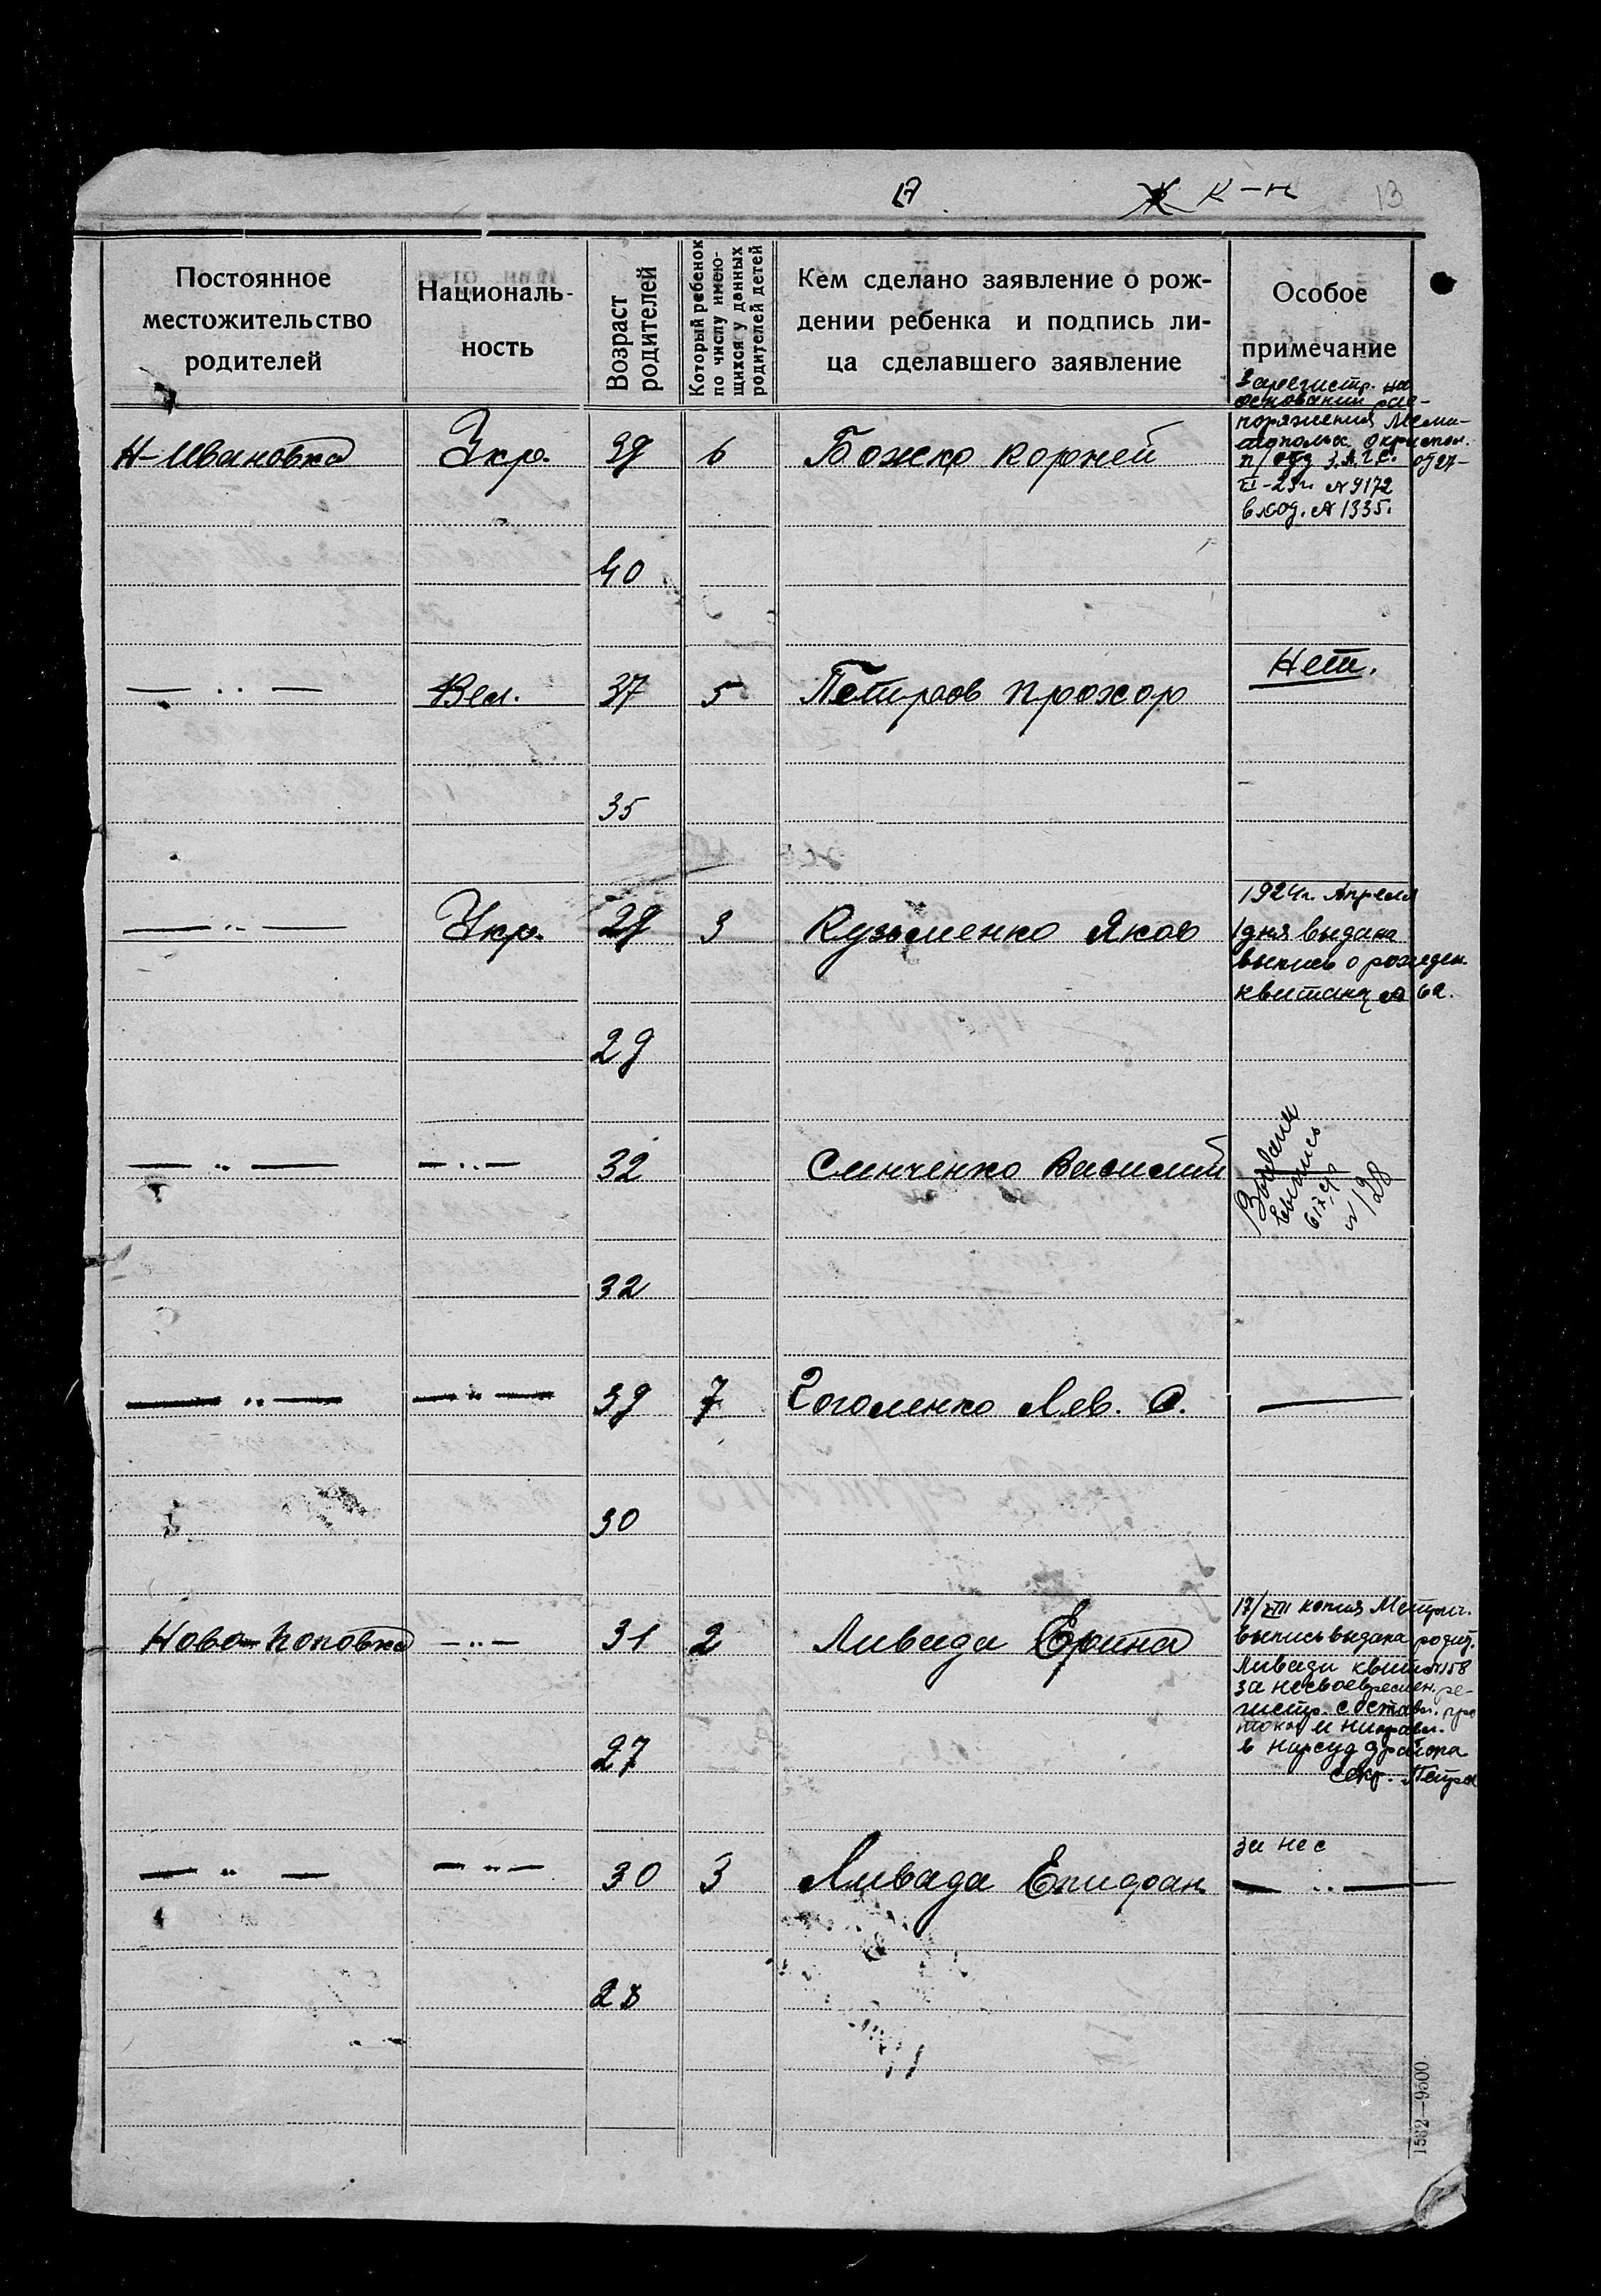 17 К-н 13
Постоянное
местожительство
родителей
Националь-
ность
Возраст
родителей
Который ребенок
по числу имею-
щихся у данных
родителей детей
Кем сделано заявление о рож-
дении ребенка и подпись ли-
ца сделавшего заявление
Особое
примечание
Н-Ивановка Укр. 39 6 Божко Корней
Зарегистр. на
основании рас-
поряжения Мели-
топольск. окриспол.
п/отд З.А.Г.С. от 27-
-23г. № 9172
вход. № 1335.
40
— ·· — Вел. 37 5 Петров Прохор Нет.
35
— ·· — Укр. 29 3 Кузьменко Яков
1924г. Апреля
1 дня выдана
выпись о рожден.
квитанц № 62.
29
— ·· — — ·· — 32 Слинченко Василий
Выдана
выпись
№ 128
32
— ·· — — ·· — 39 7 Гоголенко Лев. С. —
30
Ново-Поповка — ·· — 31 2 Ливада Ерина
17/VIII копия Метрич.
выпись выдана родит.
Ливади квит №158
за несвоевремен. ре-
гистр. составл. про
токол и направл.
в нарсуд 9 района
секр.
27
— ·· — — ·· — 30 3 Ливада Епифан
за нес
— ·· —
28
1582—9500